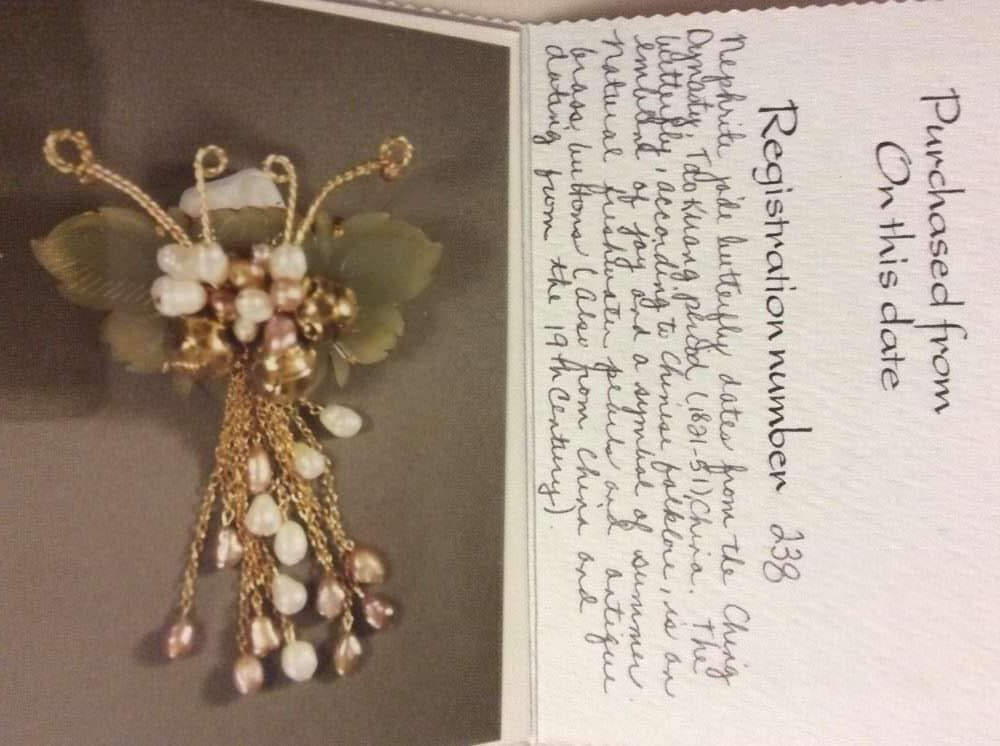 Purchased from
On this date
Registration number 238
Nephrite jade butterfly dates from the Ching
Dynasty, Tao Kuang period (1821-51), China. The
butterfly, according to Chinese folklore, is an
emblem of joy and a symbol of summer.
Natural freshwater pearls and antique
brass buttons (also from China and
dating from the 19th Century).